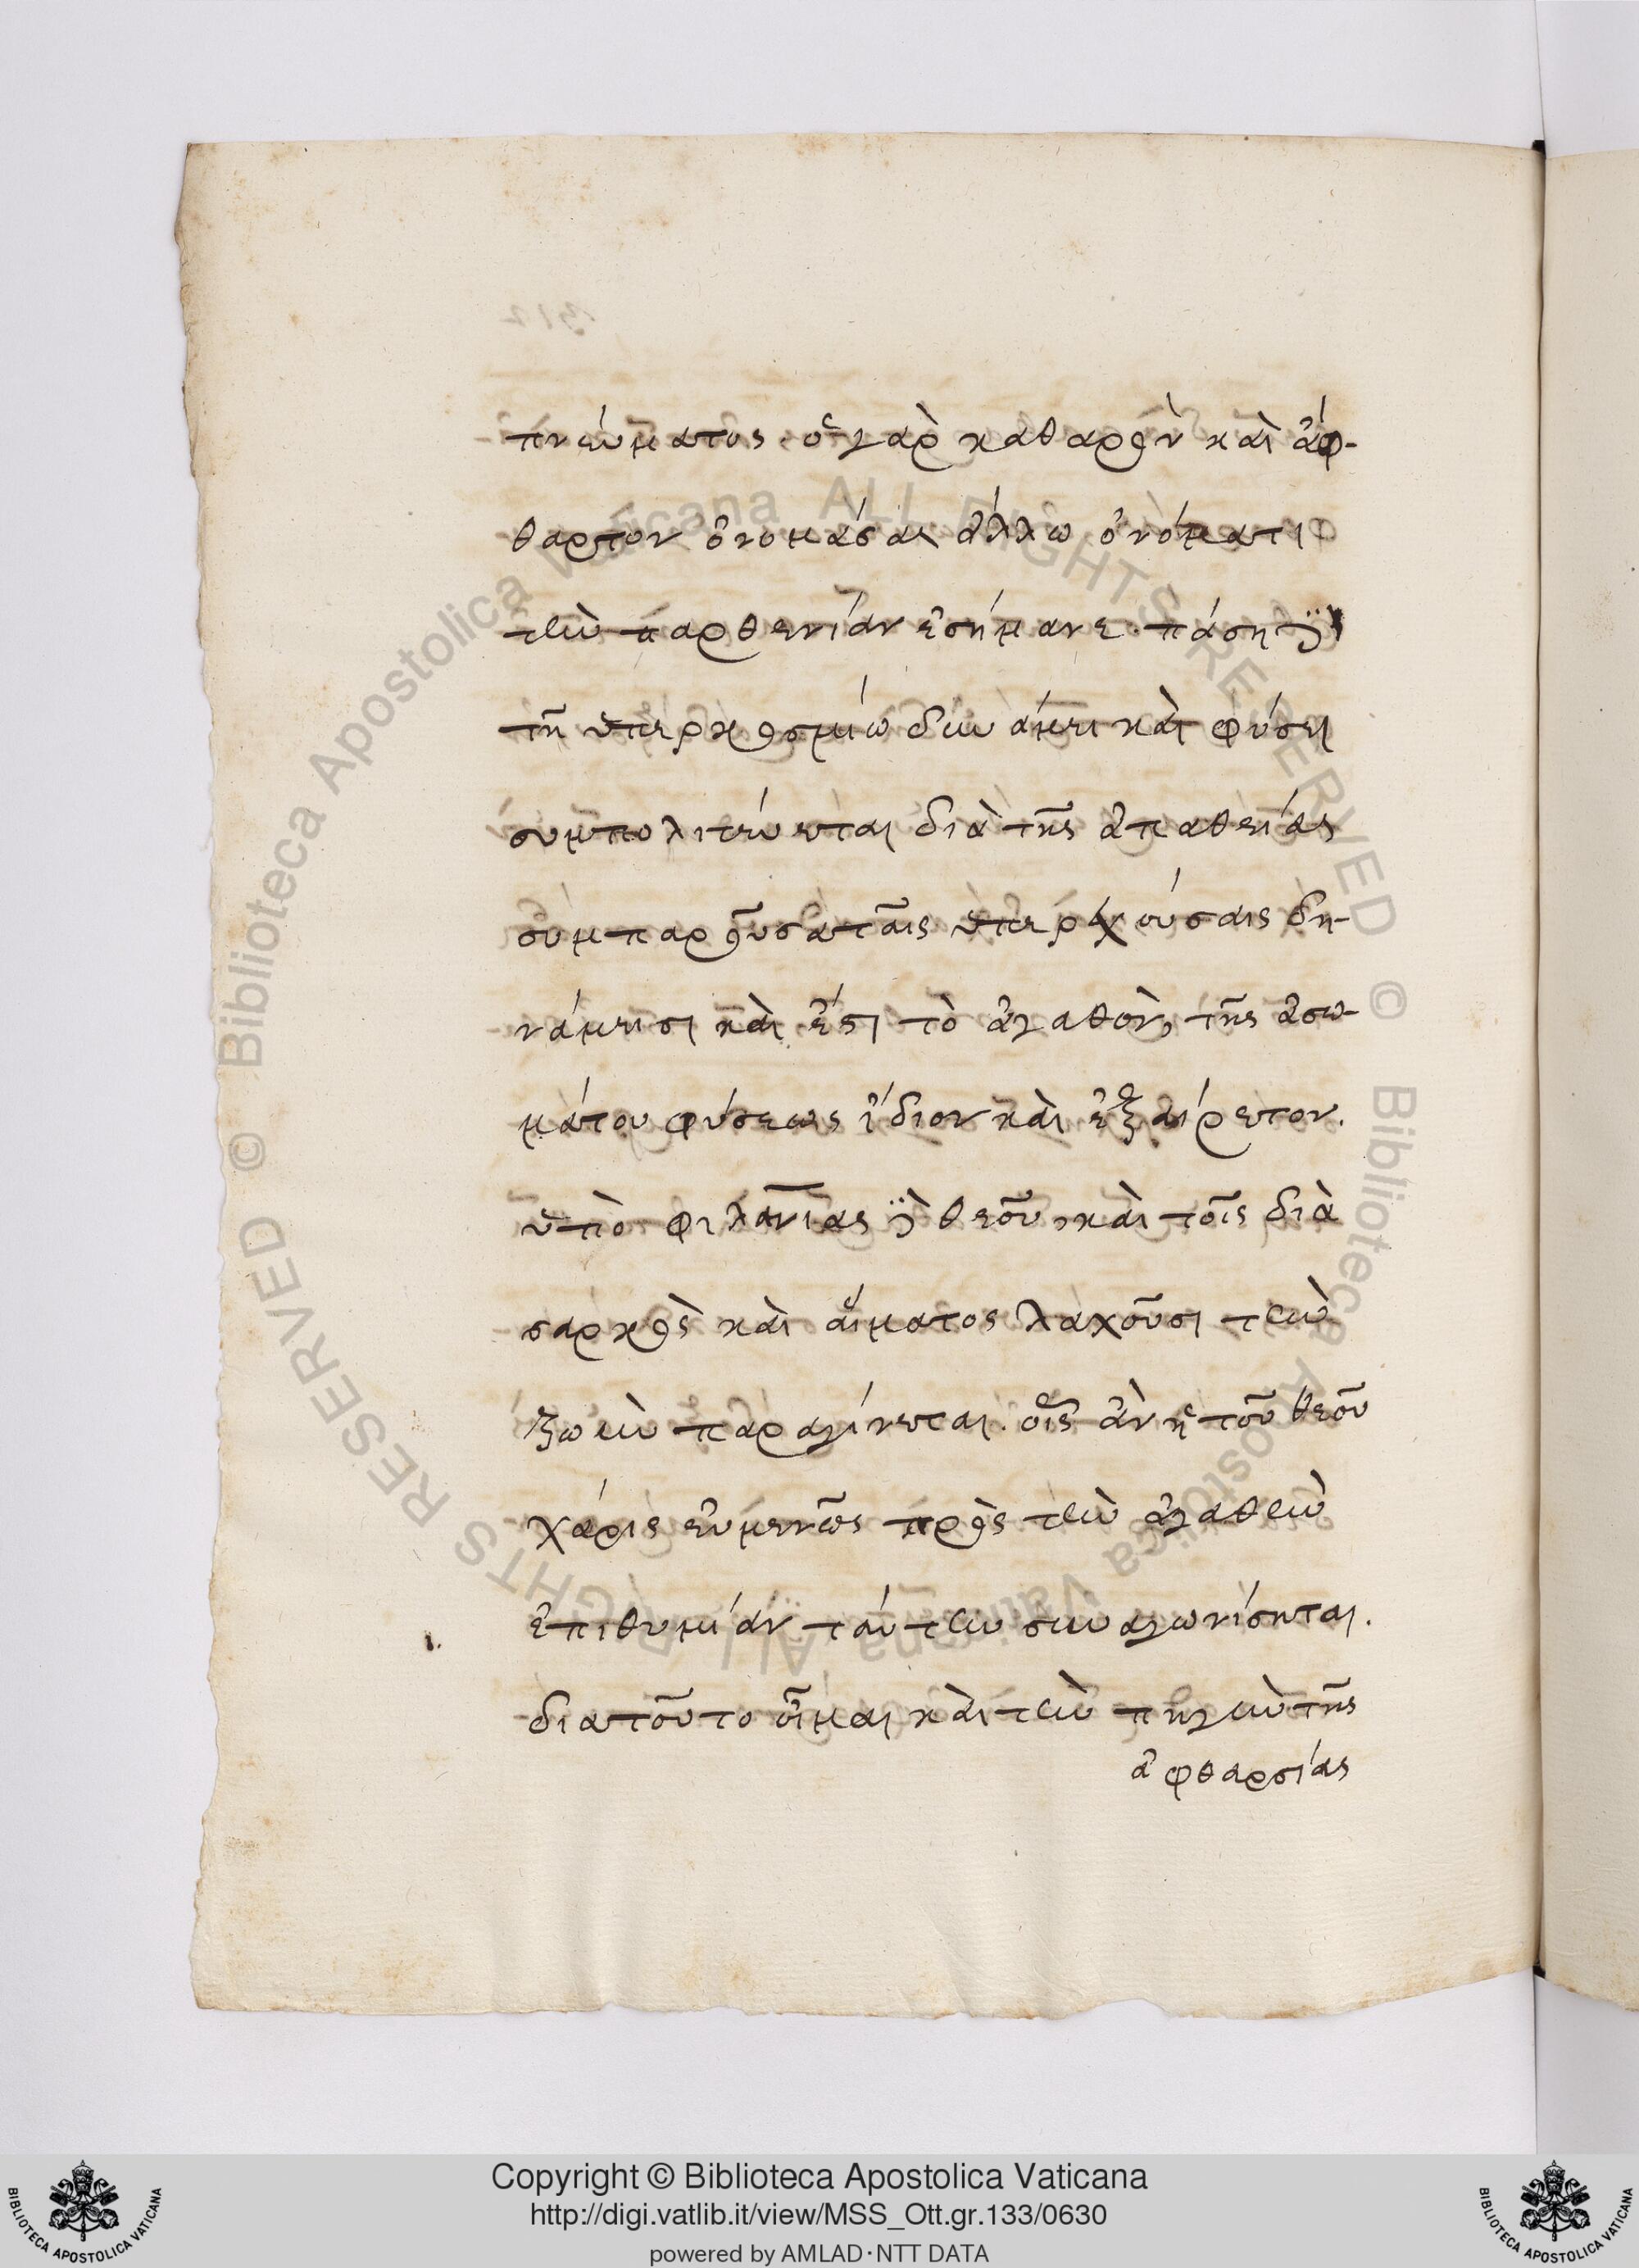 πνεύματος. ὁ γὰρ καθαρὸν καὶ ἄφ-
θαρτον ὀνομάσαι ἄλλω ὀνόματι
τὴν παρθενίαν ἐσήμανε. πάση δὲ
τῆ ὑπερκοσμίω δυνάμει καὶ φύσει
συμπολιτεύεται διὰ τῆς ἀπαθείας
συμπαροῦσα ταῖς ὑπερχούσαις δη-
νάμεισι καὶ ἔστι τὸ ἀγαθὸν, τῆς ἀσω-
μάτου φύσεως ἴδιον καὶ ἐξαίρετον.
ὑπὸ φιλανίας δὲ θεοῦ, καὶ τοῖς διὰ
σαρκὸς καὶ αἵματος λαχοῦσι τὴν
ζωὴν παραγίνεται. οἷς ἂν ἡ τοῦ θεοῦ
χάρις εὐμενῶς πρὸς τὴν ἀγαθὴν
ἐπιθυμίαν ταύτην συναγωνίσηται.
διατοῦτο οἶμαι καὶ τὴν πηγὴν τῆς
ἀφθαρσίας
© Biblioteca Apostolica Vaticana ALL RIGHTS RESERVED © Biblioteca Apostolica Vaticana ALL RIGHTS RESERVED
Copyright © Biblioteca Apostolica Vaticana
http://digi.vatlib.it/view/MSS_Ott.gr.133/0630
powered by AMLAD·NTT DATA
BIBLIOTECA APOSTOLICA VATICANA
BIBLIOTECA APOSTOLICA VATICANA